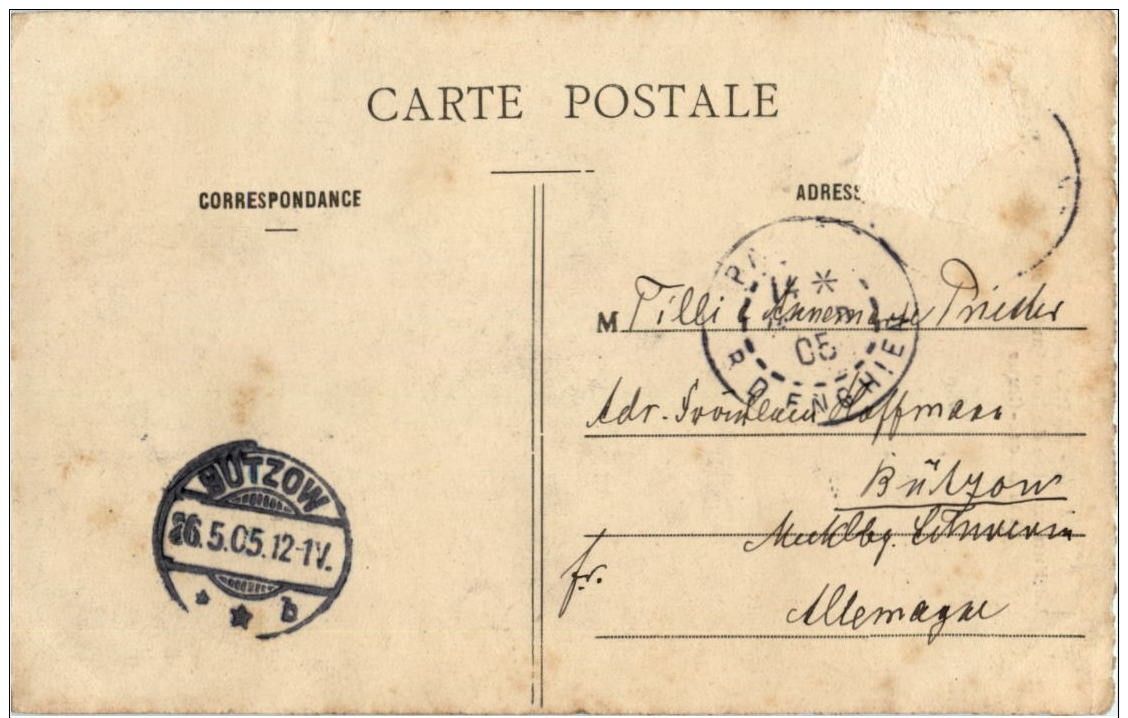 CARTE POSTALE
CORRESPONDANCE
ADRESS
M Tilli & Annemarie
Adr. Fräulein Hoffmann
Bützow
Mecklbg. Schwerin
fr.
Allemagne
PA
05
R D'ENGHIEN
BÜTZOW
26.5.05.12-1V.
* * b